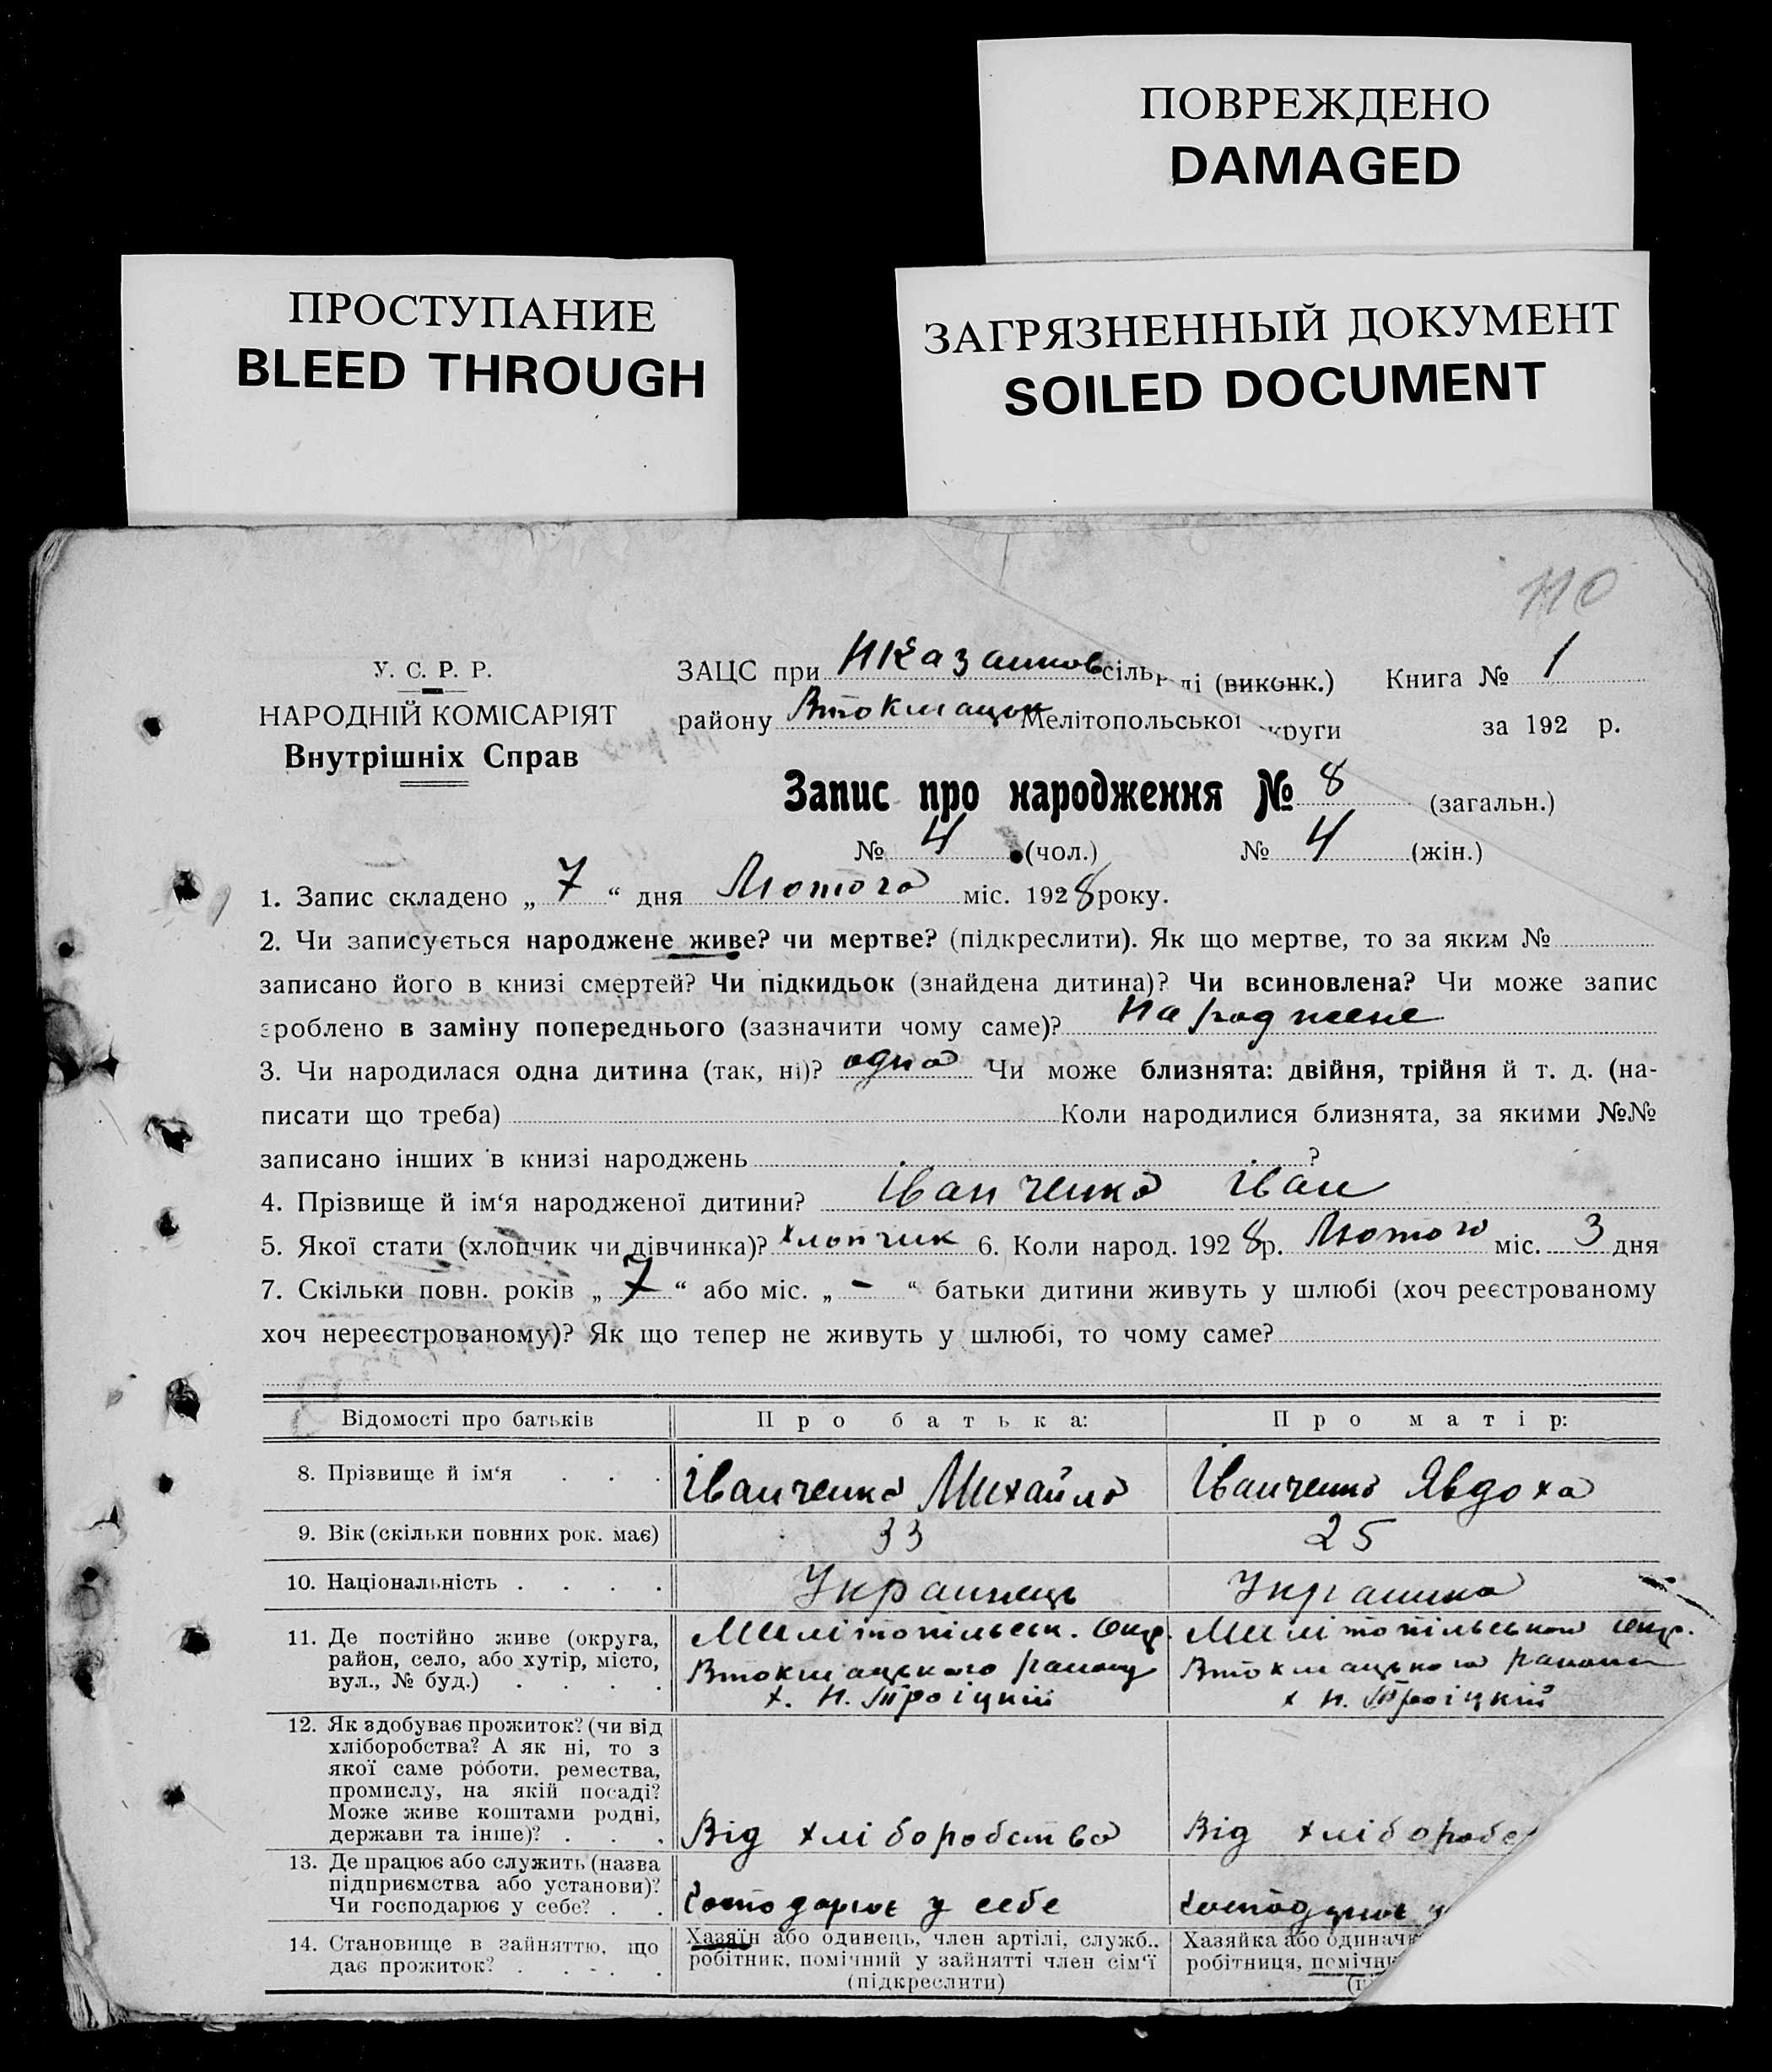 ПОВРЕЖДЕНО
DAMAGED
ПРОСТУПАНИЕ
BLEED THROUGH
ЗАГРЯЗНЕННЫЙ ДОКУМЕНТ
SOILED DOCUMENT
110
У. С. Р. Р.
НАРОДНІЙ КОМІСАРІЯТ
Внутрішніх Справ
ЗАЦС при сільр ді (виконк.) Книга № 1
району Втокмацьк Мелітопольської округи за 192 р.
Запис про народження № 8 (загальн.)
№ 4 (чол.) № 4 (жін.)
1. Запис складено „ 7 “ дня Лютого міс. 1928 року.
2. Чи записується народжене живе? чи мертве? (підкреслити). Як що мертве, то за яким №
записано його в книзі смертей? Чи підкидьок (знайдена дитина)? Чи всиновлена? Чи може запис
зроблено в заміну попереднього (зазначити чому саме)? Народжене
3. Чи народилася одна дитина (так, ні)? одна Чи може близнята: двійня, трійня й т. д. (на-
писати що треба) Коли народилися близнята, за якими №№
записано інших в книзі народжень ?
4. Прізвище й ім‘я народженої дитини? Іванченко Іван
5. Якої стати (хлопчик чи дівчинка)? хлопчик 6. Коли народ. 1928 р. Лютого міс. 3 дня
7. Скільки повн. років „ 7 “ або міс. „ - “ батьки дитини живуть у шлюбі (хоч реєстрованому
хоч нереєстрованому)? Як що тепер не живуть у шлюбі, то чому саме?
Відомості про батьків Про батька: Про матір:
8. Прізвище й ім‘я . . . Іванченко Михайло Іванченко Явдоха
9. Вік (скільки повних рок. має) 33 25
10. Національність . . . . Українець Українка
11. Де постійно живе (округа, район, село, або хутір, місто, вул., № буд.) . . . .
Милітопільськ. Окр. Втокмацького району х. Н. Троіцкій
Милітопільського Окр. Втокмацького району х Н. Троіцкій
12. Як здобуває прожиток? (чи від хліборобства? А як ні, то з якої саме роботи, ремества, промислу, на якій посаді? Може живе коштами родні, держави та інше)? . . .
Від хліборобства
Від хліборобс
13. Де працює або служить (назва підприємства або установи)? Чи господарює у себе? . .
Господарює у себе
Господарює у
14. Становище в зайняттю, що дає прожиток? . . . .
Хазяїн або одинець, член артілі, служб., робітник, помічний у зайнятті член сім‘ї (підкреслити)
Хазяйка або одиначк
робітниця, помічн